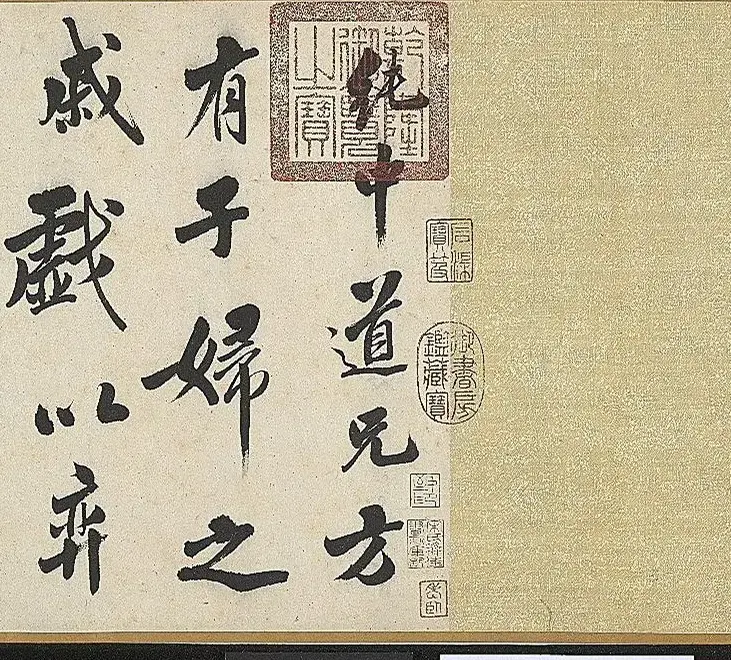 乾隆御覽之寶
石渠寶笈
御書房鑑藏寶
純中道兄方
有子婦之
戚戱以弈